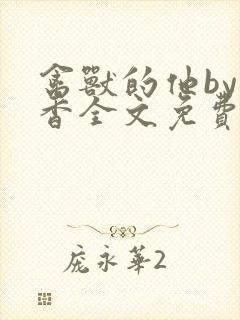 禽獸的他by
香全文免費
庞永華2